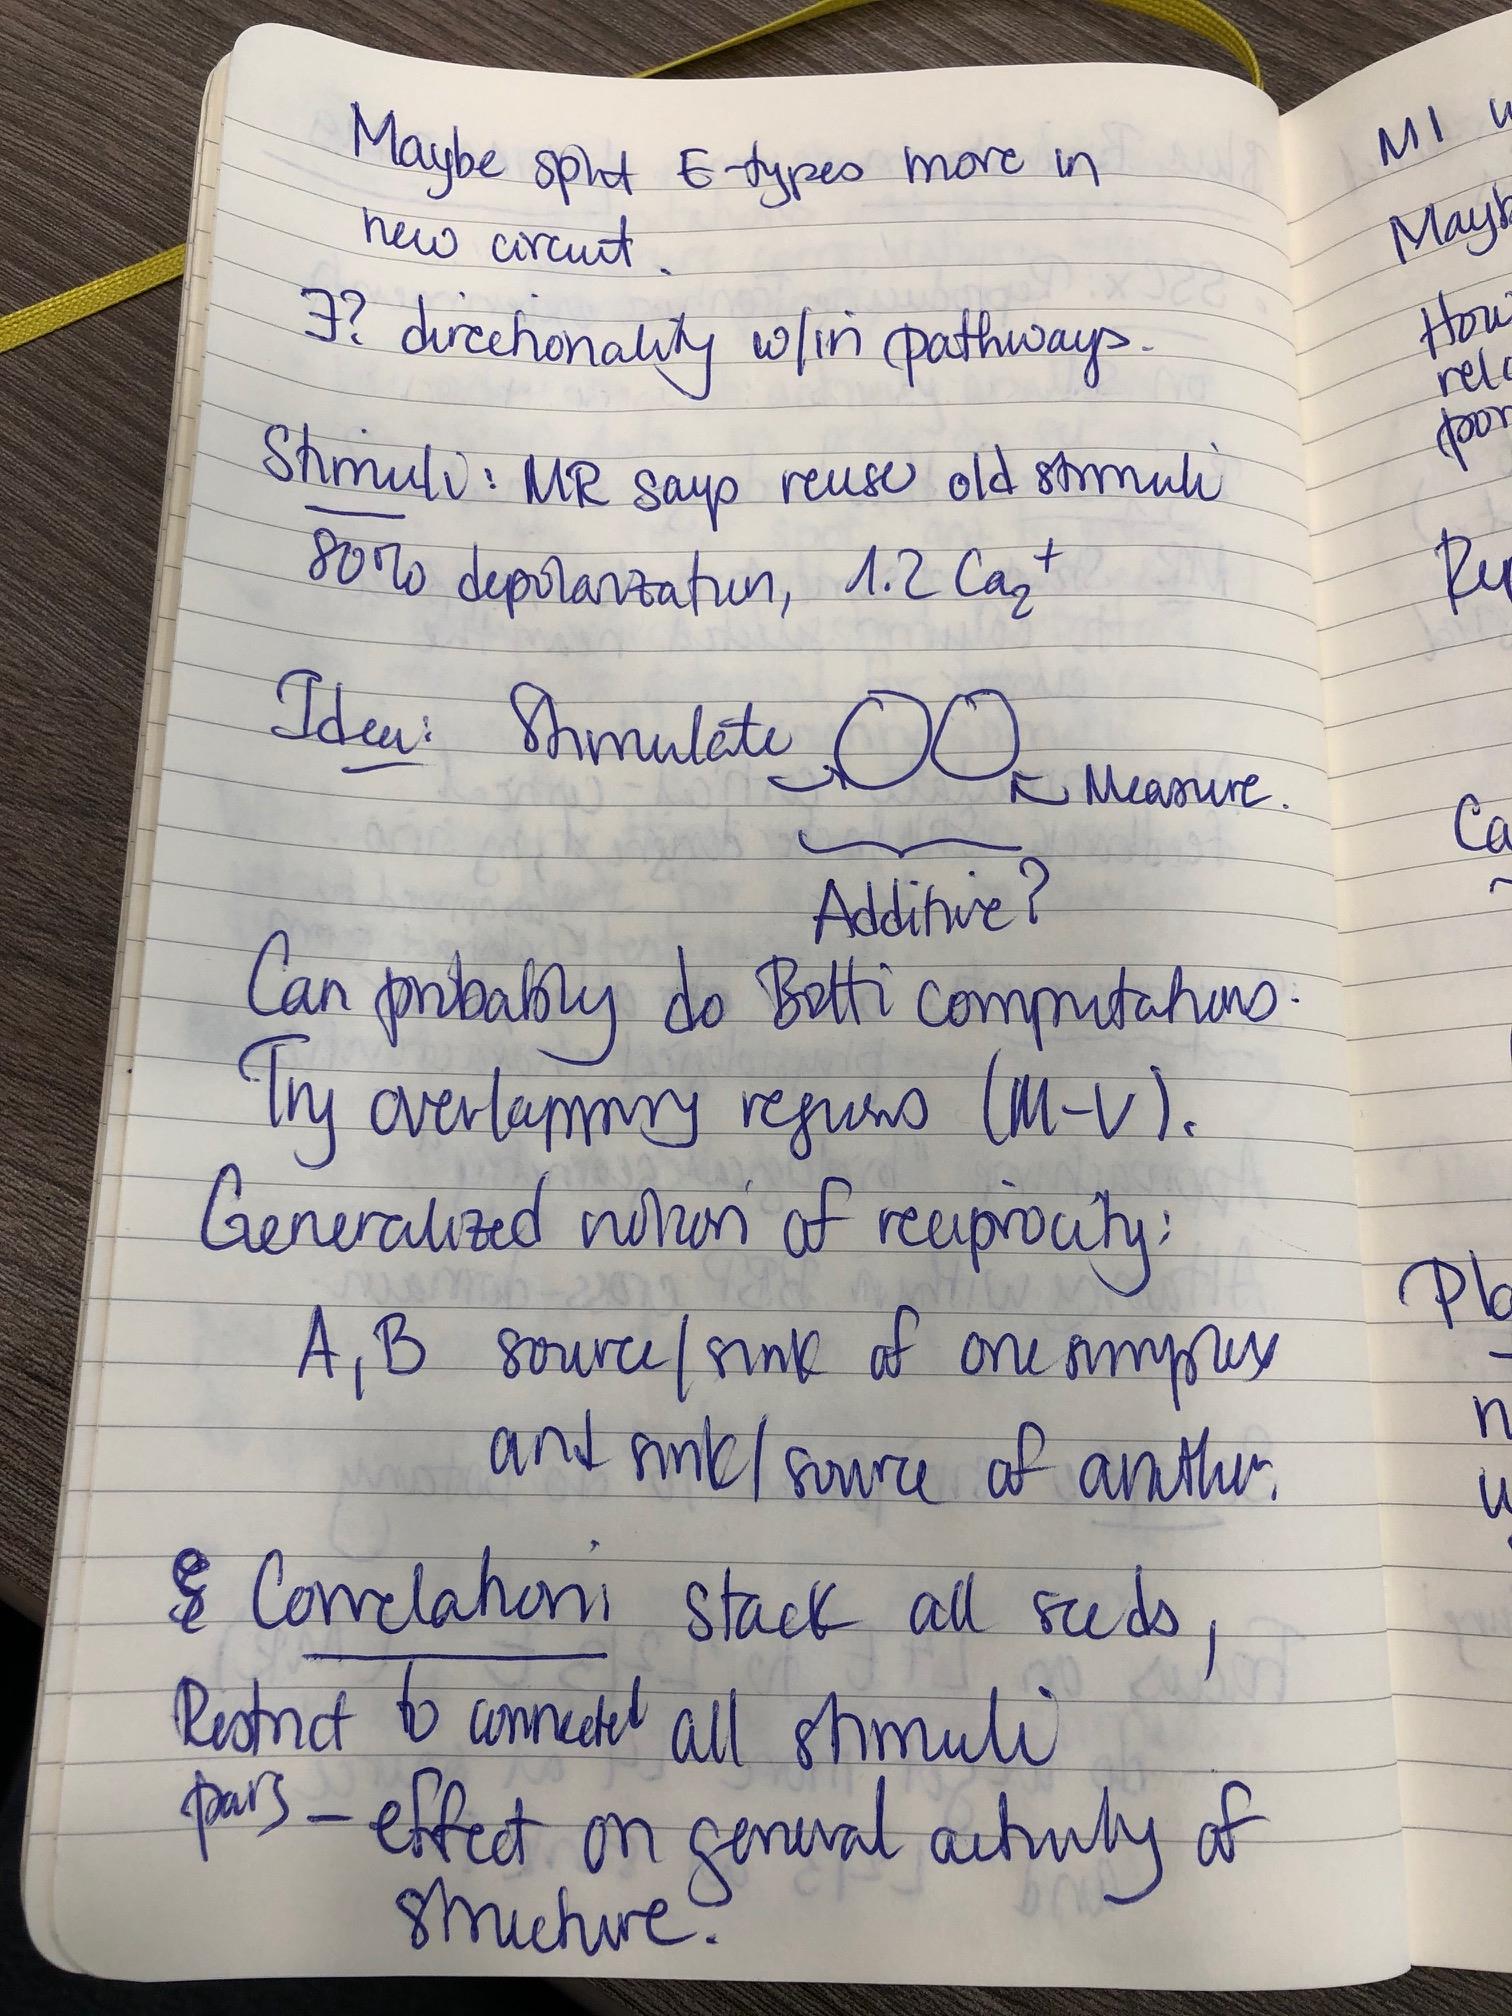 Maybe split E-types more in
new circuit.
∃? directionality w/in pathways.
Stimuli: MR says reuse old stimuli
80% depolarization, 1.2 Ca2+
Idea: Stimulate
Measure.
Additive?
Can probably do Betti computations.
(Try overlapping regions (M-V).
Generalized notion of reciprocity:
A, B source/sink of one simplex
and sink/source of another.
§ Correlation: Stack all seeds,
Restrict to connected all stimuli
pairs – effect on general activity of
structure.
M1
Mayb
How
rela
Ca
(Pb
n